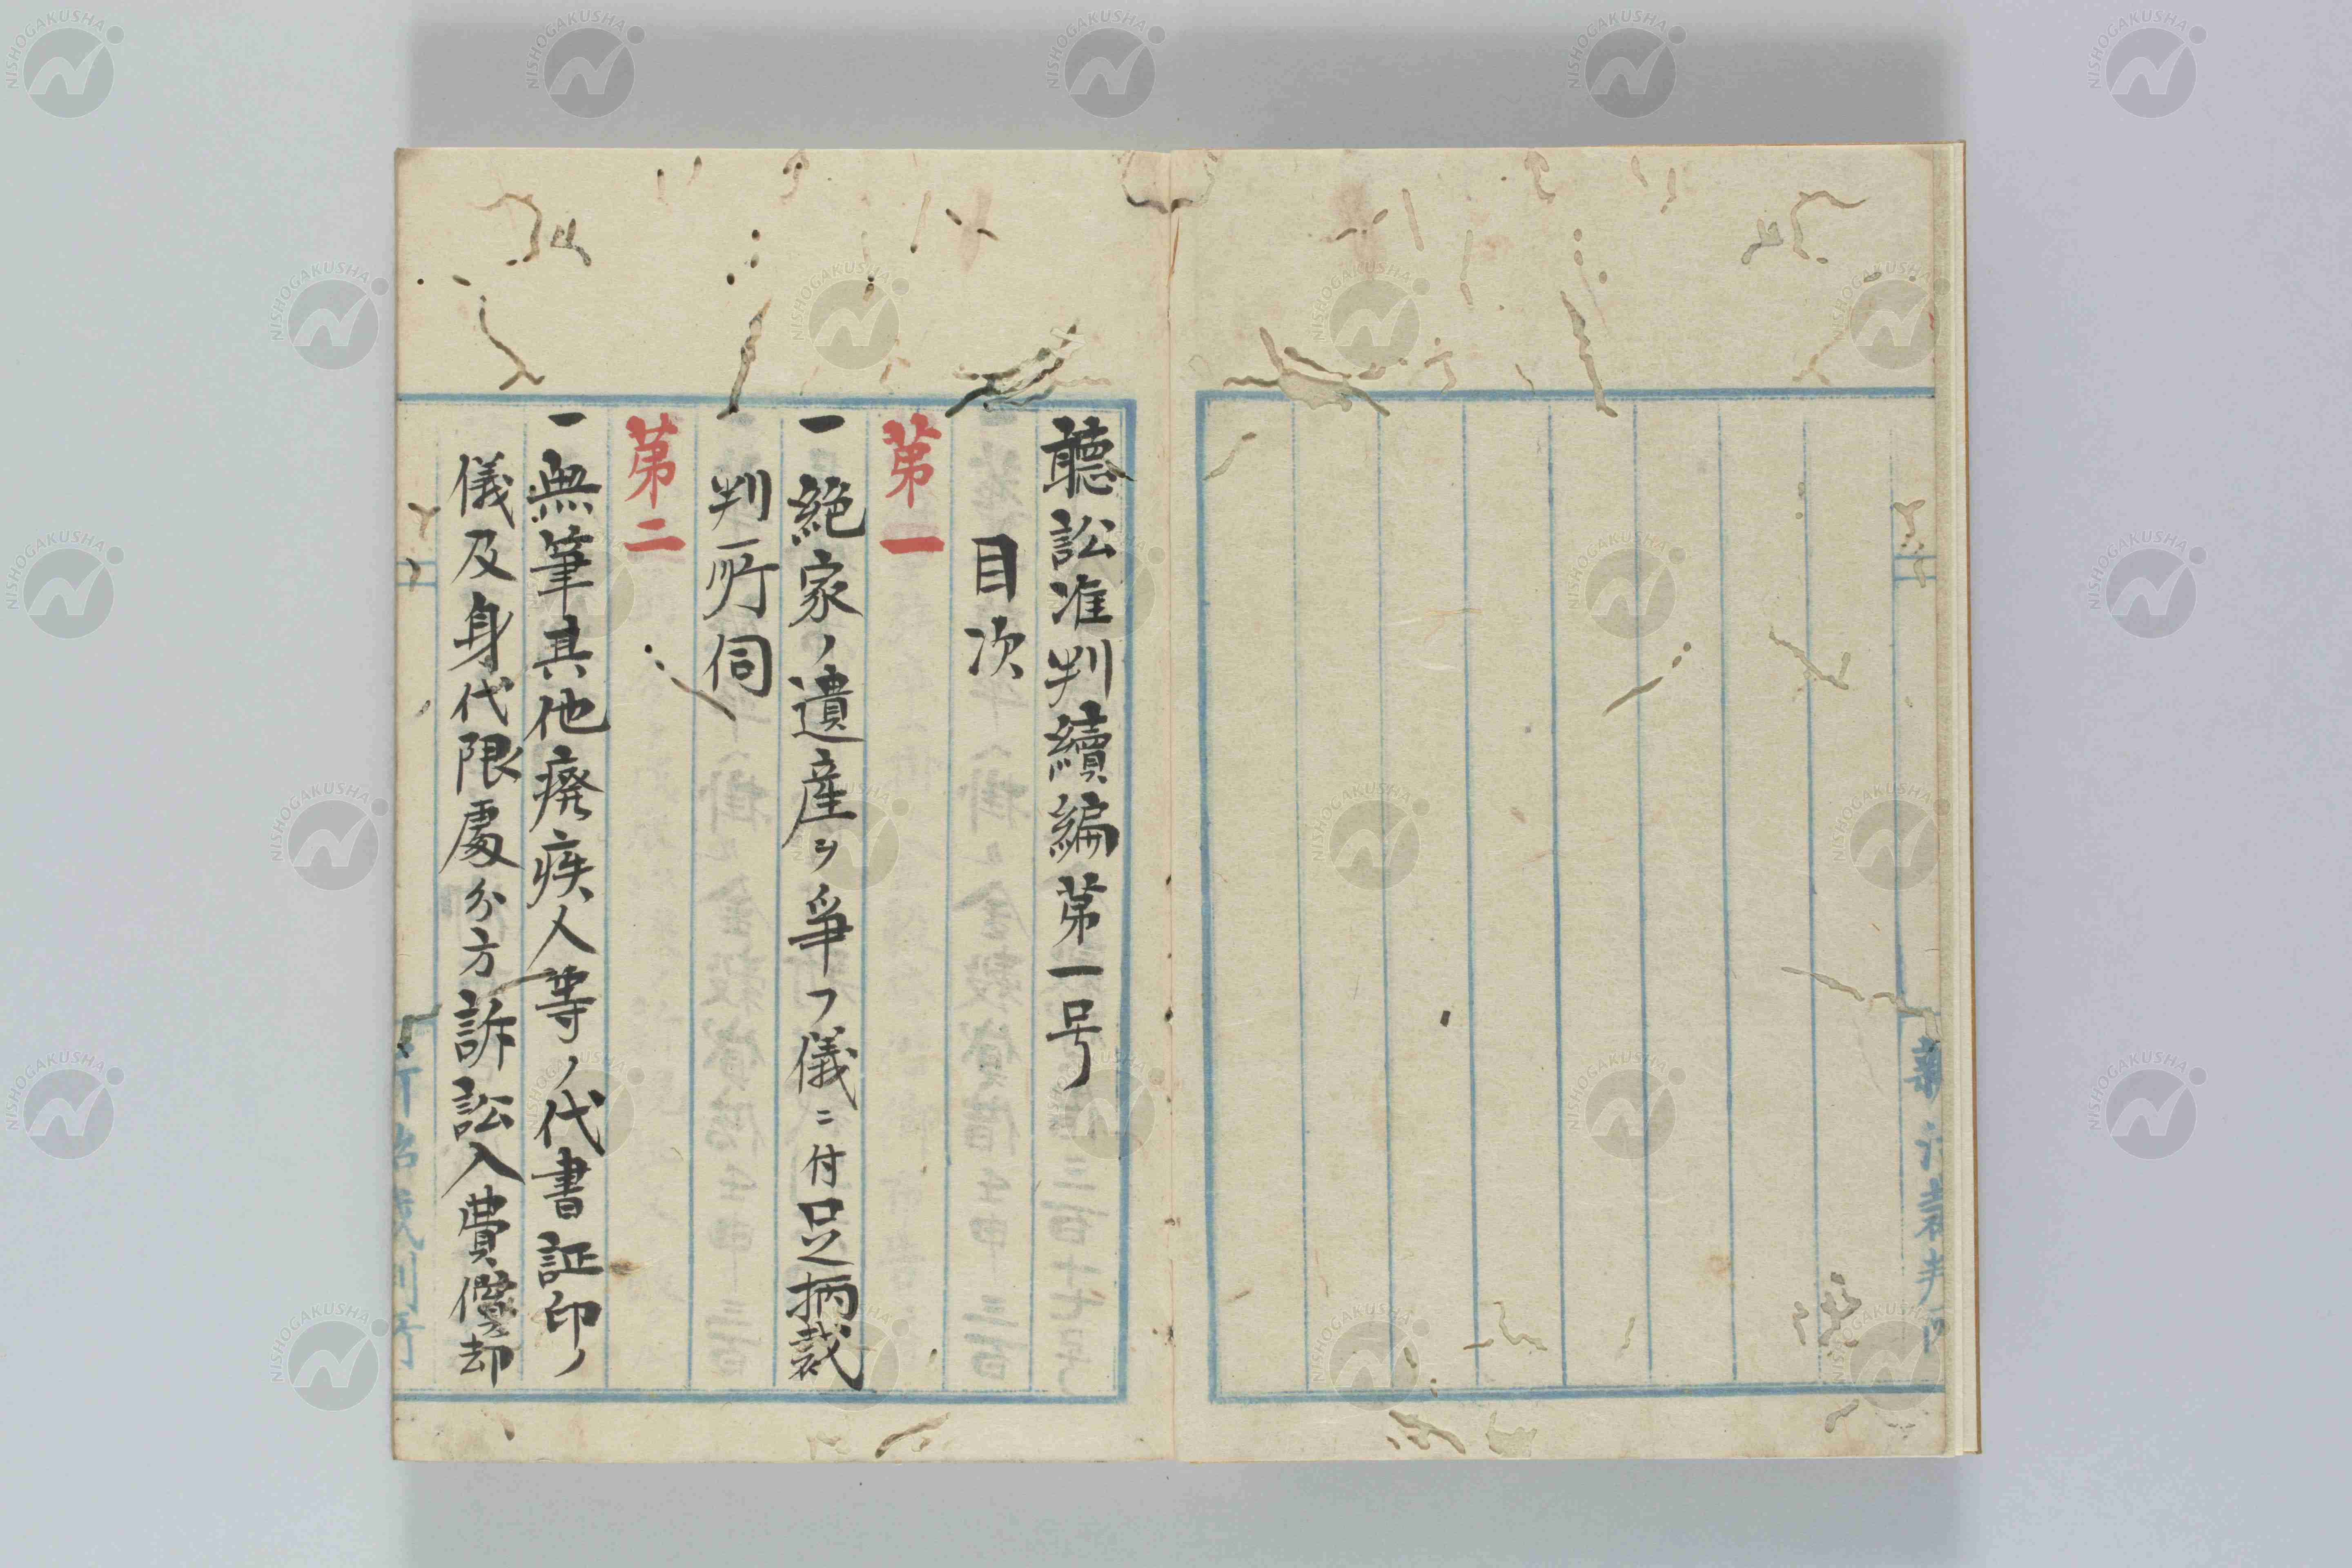 聽訟准判續編第一号
目次
第一
一絶家ノ遺産ヲ爭フ儀ニ付足柄裁
判所伺
第二
一無筆其他癈疾人等ノ代書証印ノ
儀及身代限處分方訴訟入費償却
NISHOGAKUSHA